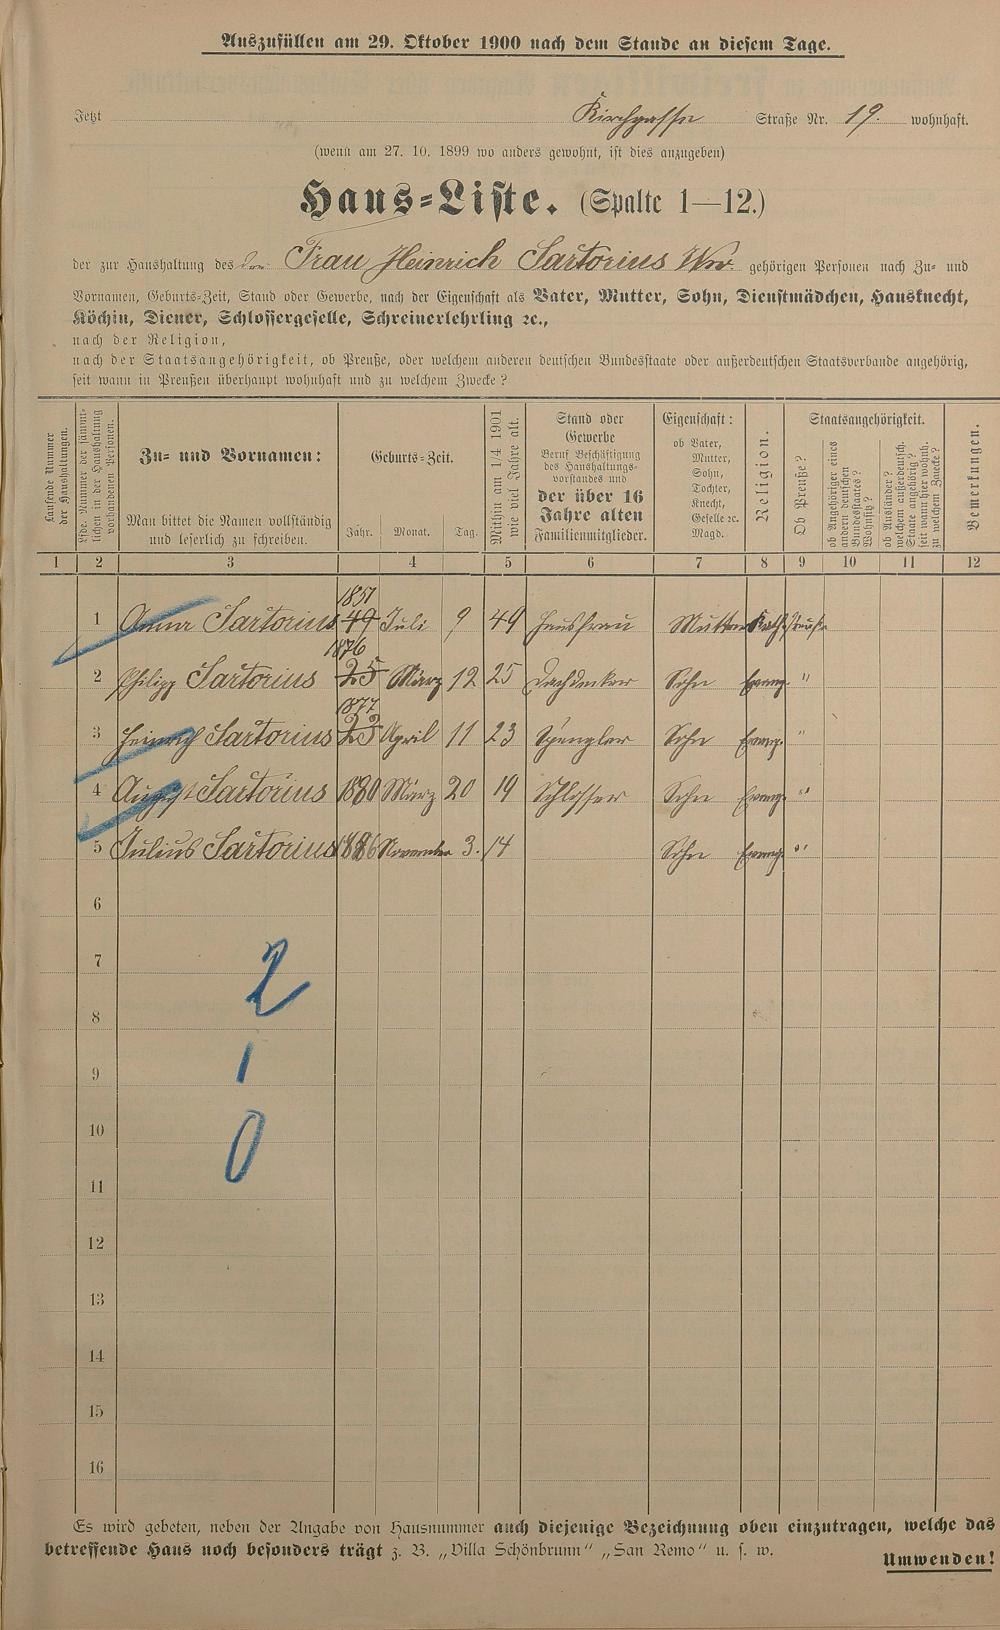 Auszufüllen am 29. Oktober 1900 nach dem Stande an diesem Tage.
Jetzt Kirchgasse Straße Nr. 19. wohnhaft.
(wenn am 27. 10. 1899 wo anders gewohnt, ist dies anzugeben)
Haus=Liste. (Spalte 1—12.)
der zur Haushaltung des der Frau Heinrich Sartorius Ww. gehörigen Personen nach Zu= und
Vornamen, Geburts=Zeit, Stand oder Gewerbe, nach der Eigenschaft als Vater, Mutter, Sohn, Dienstmädchen, Hausknecht,
Köchin, Diener, Schlossergeselle, Schreinerlehrling ꝛc.,
nach der Religion,
nach der Staatsangehörigkeit, ob Preuße, oder welchem anderen deutschen Bundesstaate oder außerdeutschen Staatsverbande angehörig,
seit wann in Preußen überhaupt wohnhaft und zu welchem Zwecke?
Laufende Nummer
der Haushaltungen.
Lfde. Nummer der sämmt-
lichen in der Haushaltung
vorhandenen Personen.
Zu= und Vornamen:
Man bittet die Namen vollständig
und leserlich zu schreiben.
Geburts=Zeit.
Jahr. Monat. Tag.
Mithin am 1/4 1901
wie viel Jahre alt.
Stand oder
Gewerbe
Beruf Beschäftigung
des Haushaltungs-
vorstandes und
der über 16
Jahre alten
Familienmitglieder.
Eigenschaft:
ob Vater,
Mutter,
Sohn,
Tochter,
Knecht,
Geselle ꝛc.
Magd.
Religion.
Staatsangehörigkeit.
Ob Preuße?
ob Angehöriger eines
andern deutschen
Bundesstaates?
Wohnsitz?
ob Ausländer?
welchem außerdeutsch.
Staate angehörig?
seit wann hier wohnh.
zu welchem Zwecke?
Bemerkungen.
1 2 3 4 5 6 7 8 9 10 11 12
1851
1 Anna Sartorius 49 Juli 9 49 Hausfrau Mutter Kath. Preuße
1876
2 Philipp Sartorius 25 März 12 25 Dachdecker Sohn Evang. "
1877
3 Heinrich Sartorius 23 April 11 23 Spengler Sohn Evang. "
4 August Sartorius 1880 März 20 19 Schlosser Sohn Evang. "
5 Julius Sartorius 1886 November 3. 14 Sohn Evang. "
6
7
2
8
1
9
10
0
11
12
13
14
15
16
Es wird gebeten, neben der Angabe von Hausnummer auch diejenige Bezeichnung oben einzutragen, welche das
betreffende Haus noch besonders trägt z. B. „Villa Schönbrunn" „San Remo" u. s. w.
Umwenden!